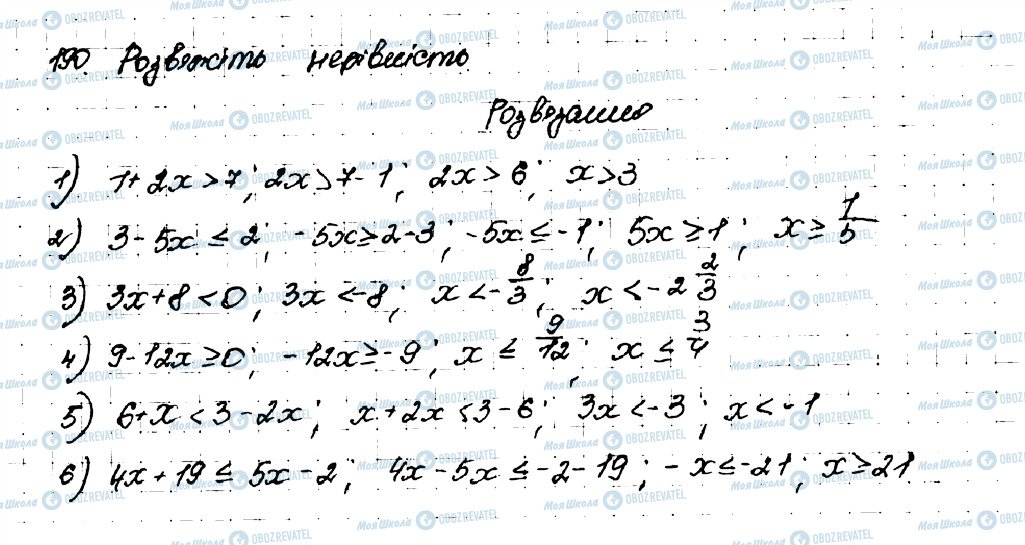 190 Розвяжіть нерівність
Розвязання
1) 1+2x>7; 2x>7-1; 2x>6; x>3
2) 3-5x≤2; -5x≥2-3; -5x≤-1; 5x≥1; x≥1/5
3) 3x+8<0; 3x<-8; x<-8/3; x<-2 2/3
4) 9-12x≥0; -12x≥-9; x≤9/12; x≤3/4
5) 6+x<3-2x; x+2x<3-6; 3x<-3; x<-1
6) 4x+19≤5x-2; 4x-5x≤-2-19; -x≤-21; x≥21